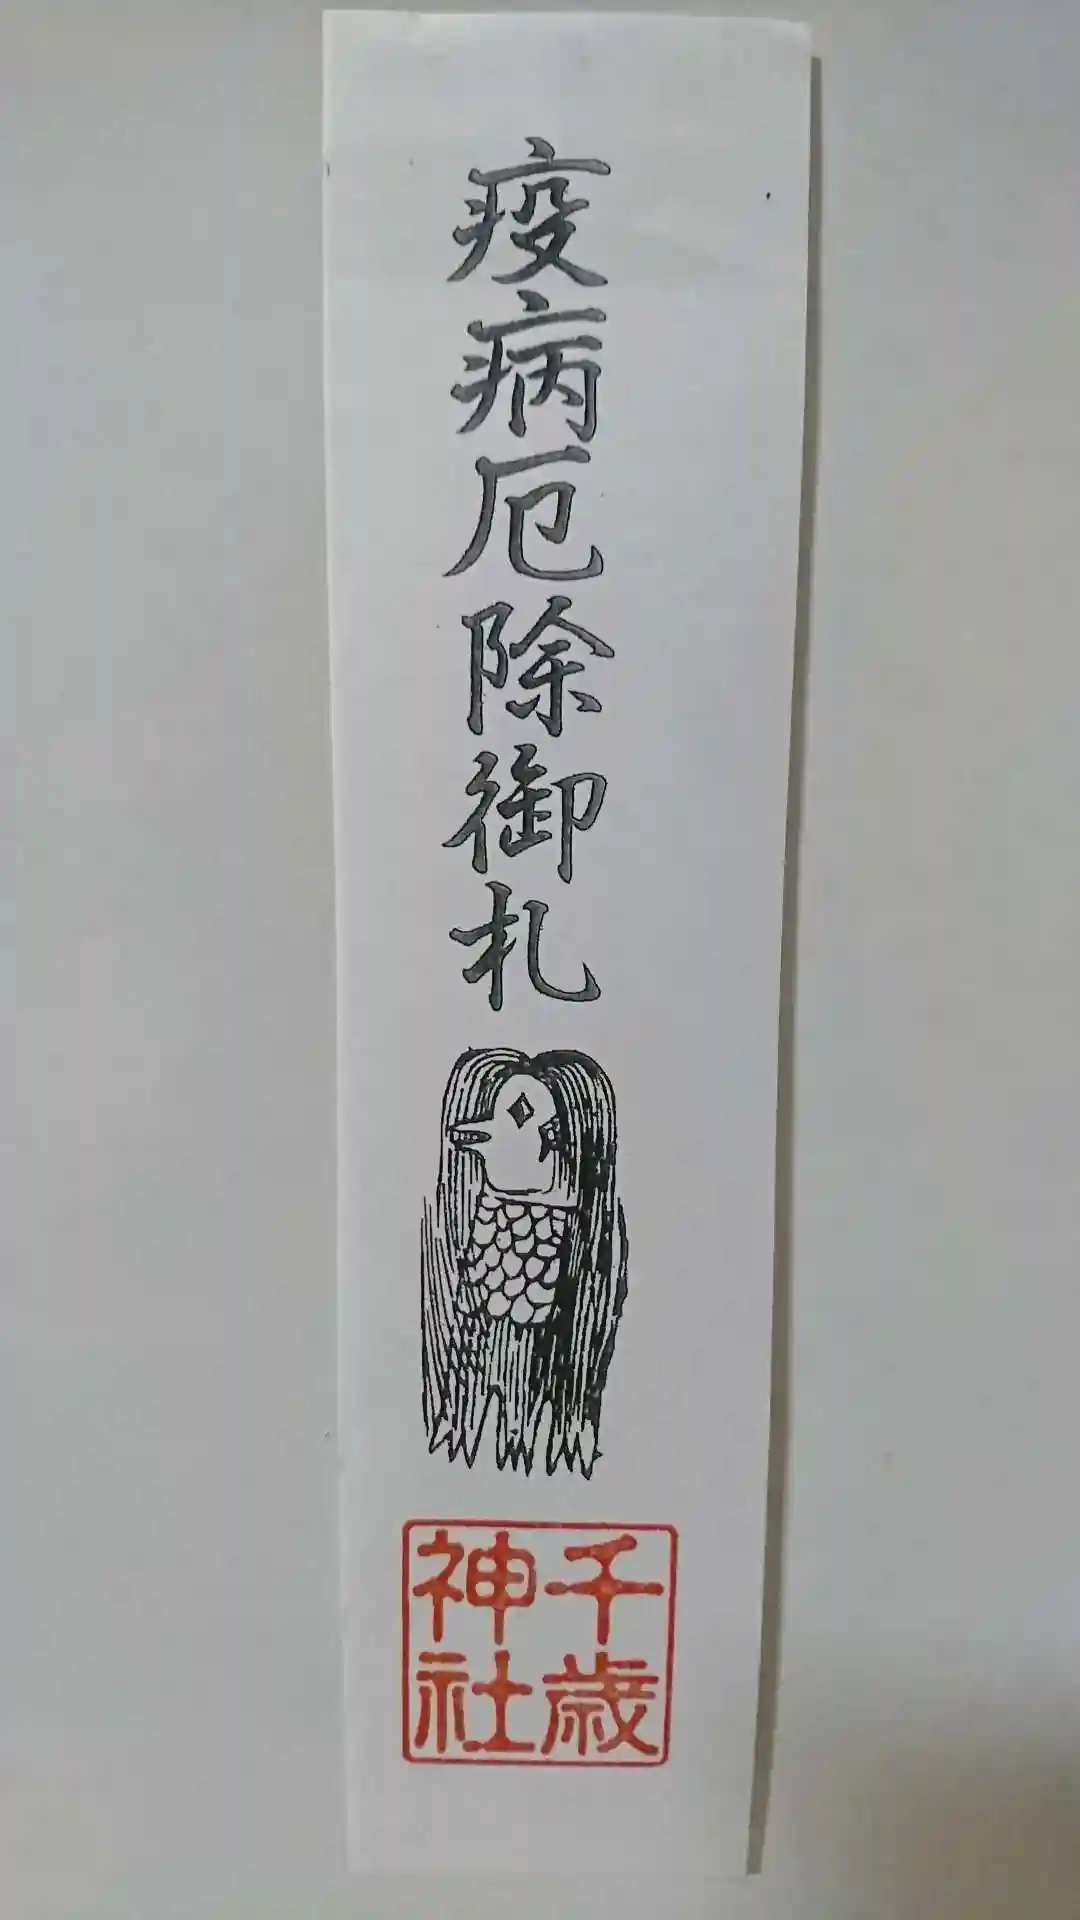 疫病厄除御札
千歳
神社